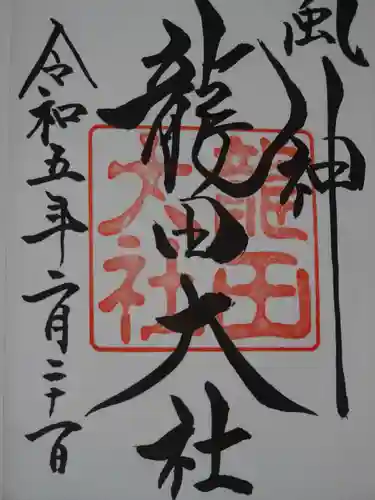 風神
龍田大社
龍田
大社
令和五年二月二十一日